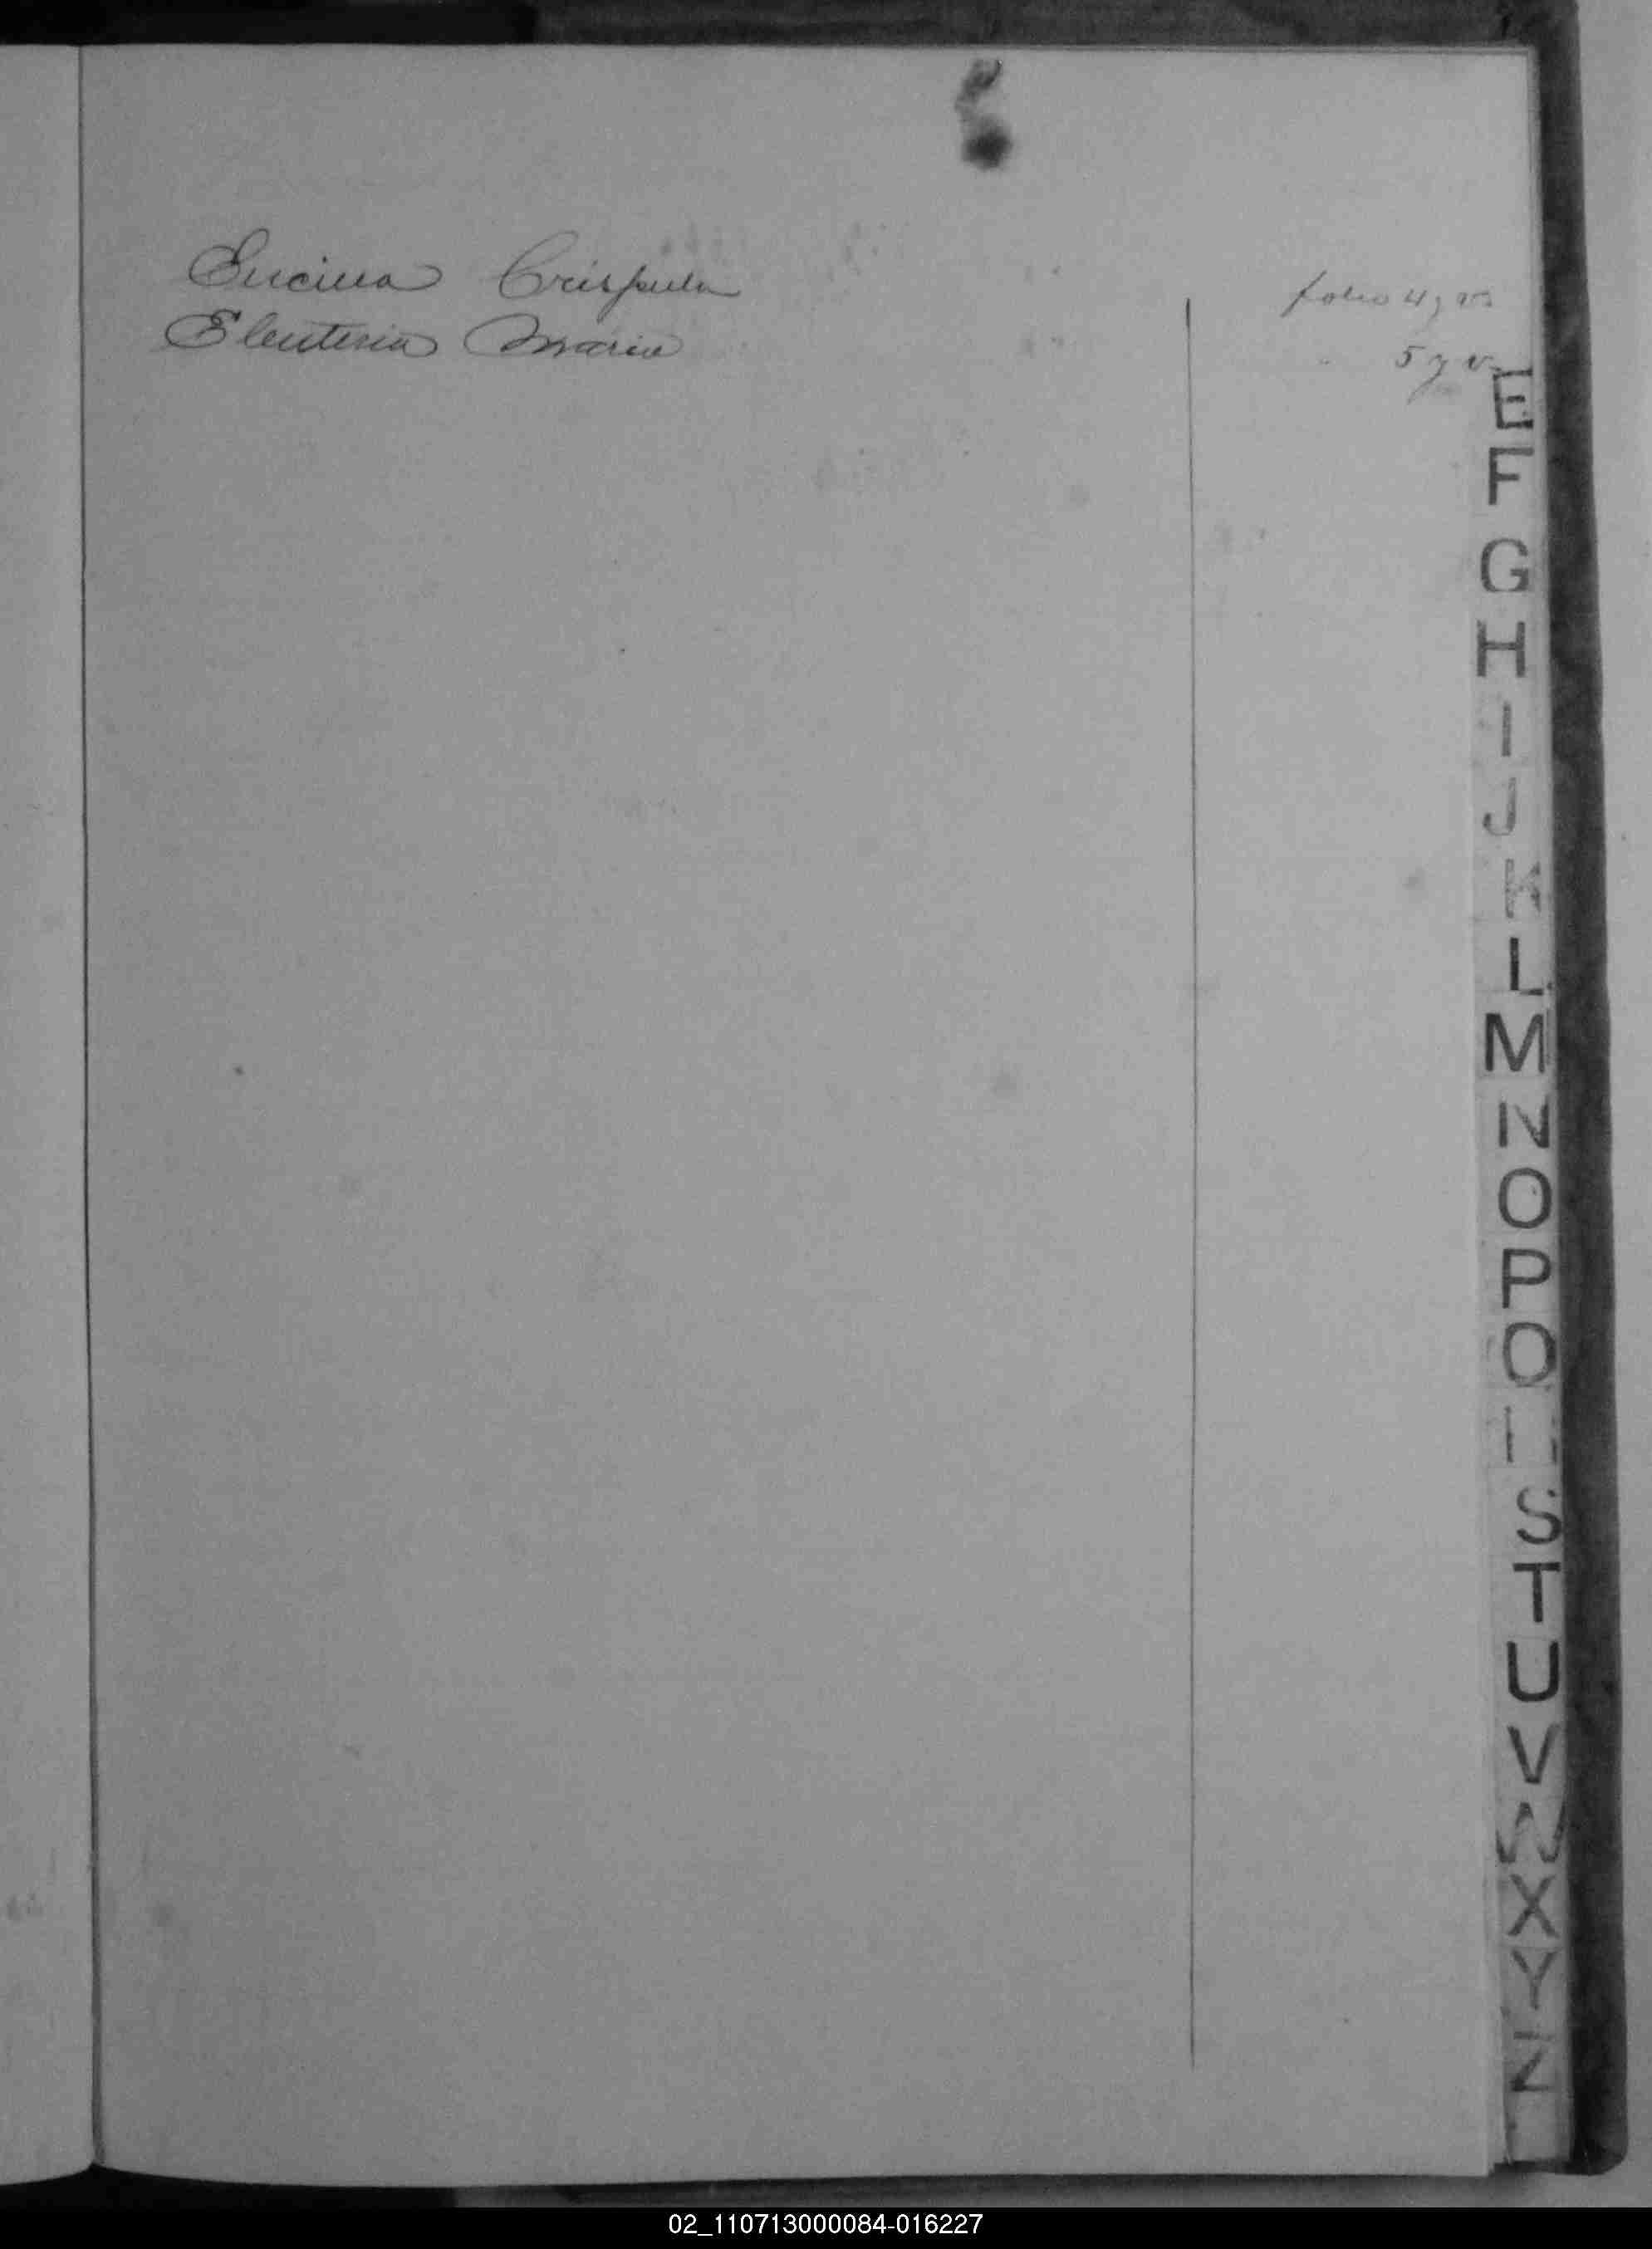 Encina Crispula folio 4 y vo
Eleuteria Maria " 5 y v
E
F
G
H
I
J
K
L
M
N
O
P
Q
S
T
U
V
W
X
Y
Z
02_110713000084-016227